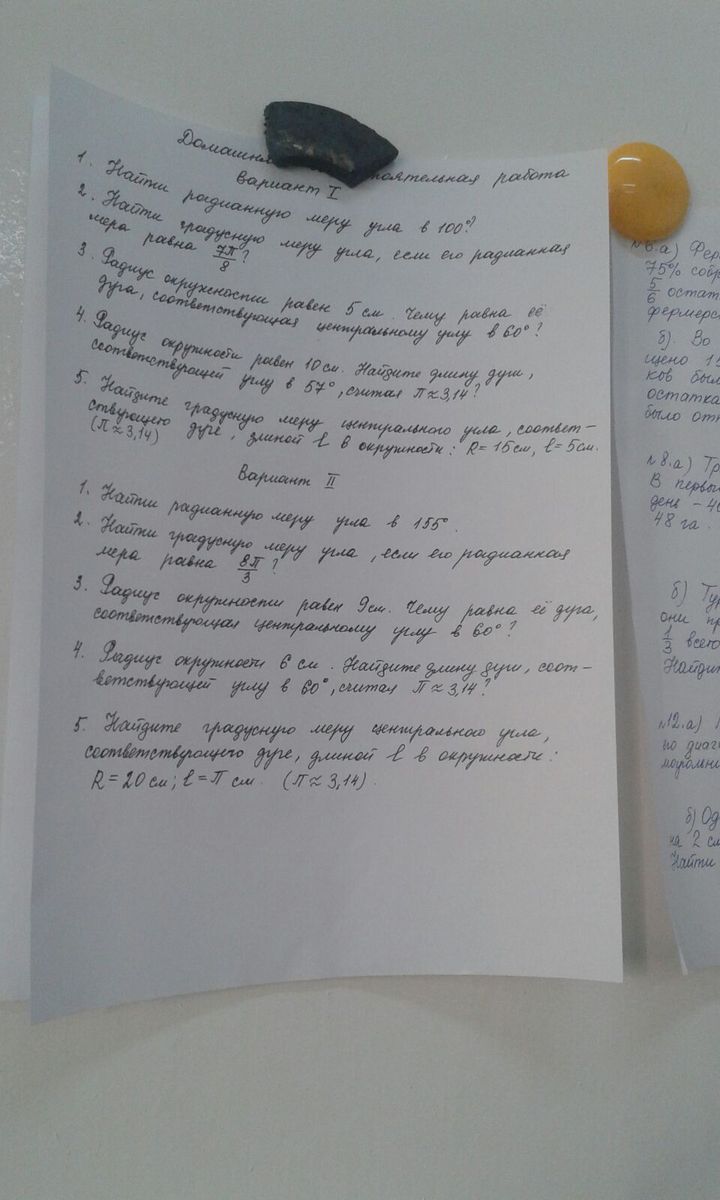 Домашняя самостоятельная работа
Вариант I
1. Найти радианную меру угла в 100°?
2. Найти градусную меру угла, если его радианная
мера равна 7π/8?
3. Радиус окружности равен 5 см. Чему равна её
дуга, соответствующая центральному углу в 60°?
4. Радиус окружности равен 10 см. Найдите длину дуги,
соответствующей углу в 57°, считая π≈3,14?
5. Найдите градусную меру центрального угла, соответ-
ствующего дуге, длиной l в окружности: R=15см, l=5см.
(π≈3,14)
Вариант II
1. Найти радианную меру угла в 155°.
2. Найти градусную меру угла, если его радианная
мера равна 8π/3?
3. Радиус окружности равен 9см. Чему равна её дуга,
соответствующая центральному углу в 60°?
4. Радиус окружности 6 см. Найдите длину дуги, соот-
ветствующей углу в 60°, считая π≈3,14?
5. Найдите градусную меру центрального угла,
соответствующего дуге, длиной l в окружности:
R=20см; l=π см. (π≈3,14).
№6.а)
75%
5/6
б). Во
было
№8.а)
В
день
48 га.
б)
они
1/3
№12.а)
по
б)
на 2 см
Найти